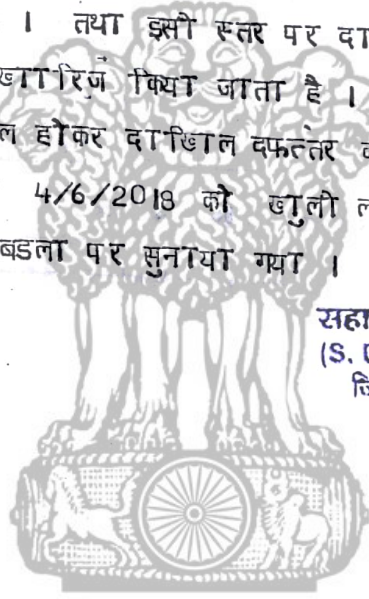 । तथा इसी स्तर पर दा
खारिज किया जाता है ।
ल होकर दाखिल दफ्तर
4/6/2018 को खुली ल
बडला पर सुनाया गया ।
सहा
(S.
जि